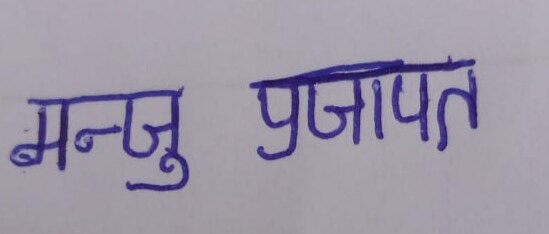 मन्जु प्रजापत